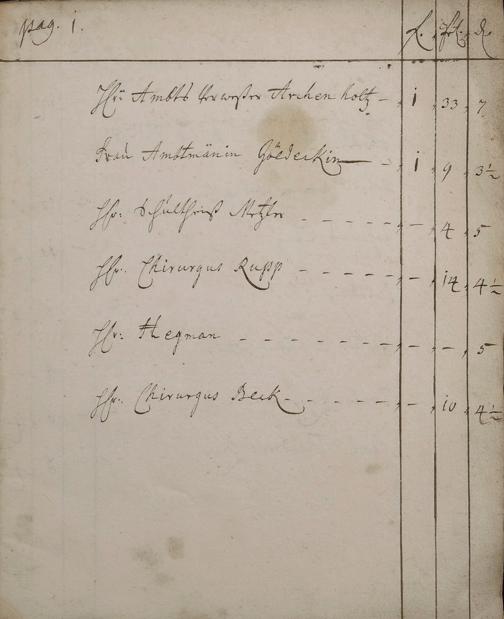 pag. 1. f. ßl. d.
Hr: Ambts Verweser Archenholtz - 1 33 7
Frau Ambtmänin Göldeckin - 1 9 3½
Hr: Schultheiß Metzler - - - - - - 4 5
Hr: Chirurgus Rupp - - - - - 14 4½
Hr: Hegman - - - - - - - - 5
Hr: Chirurgus Beck - - - - - - 10 4½